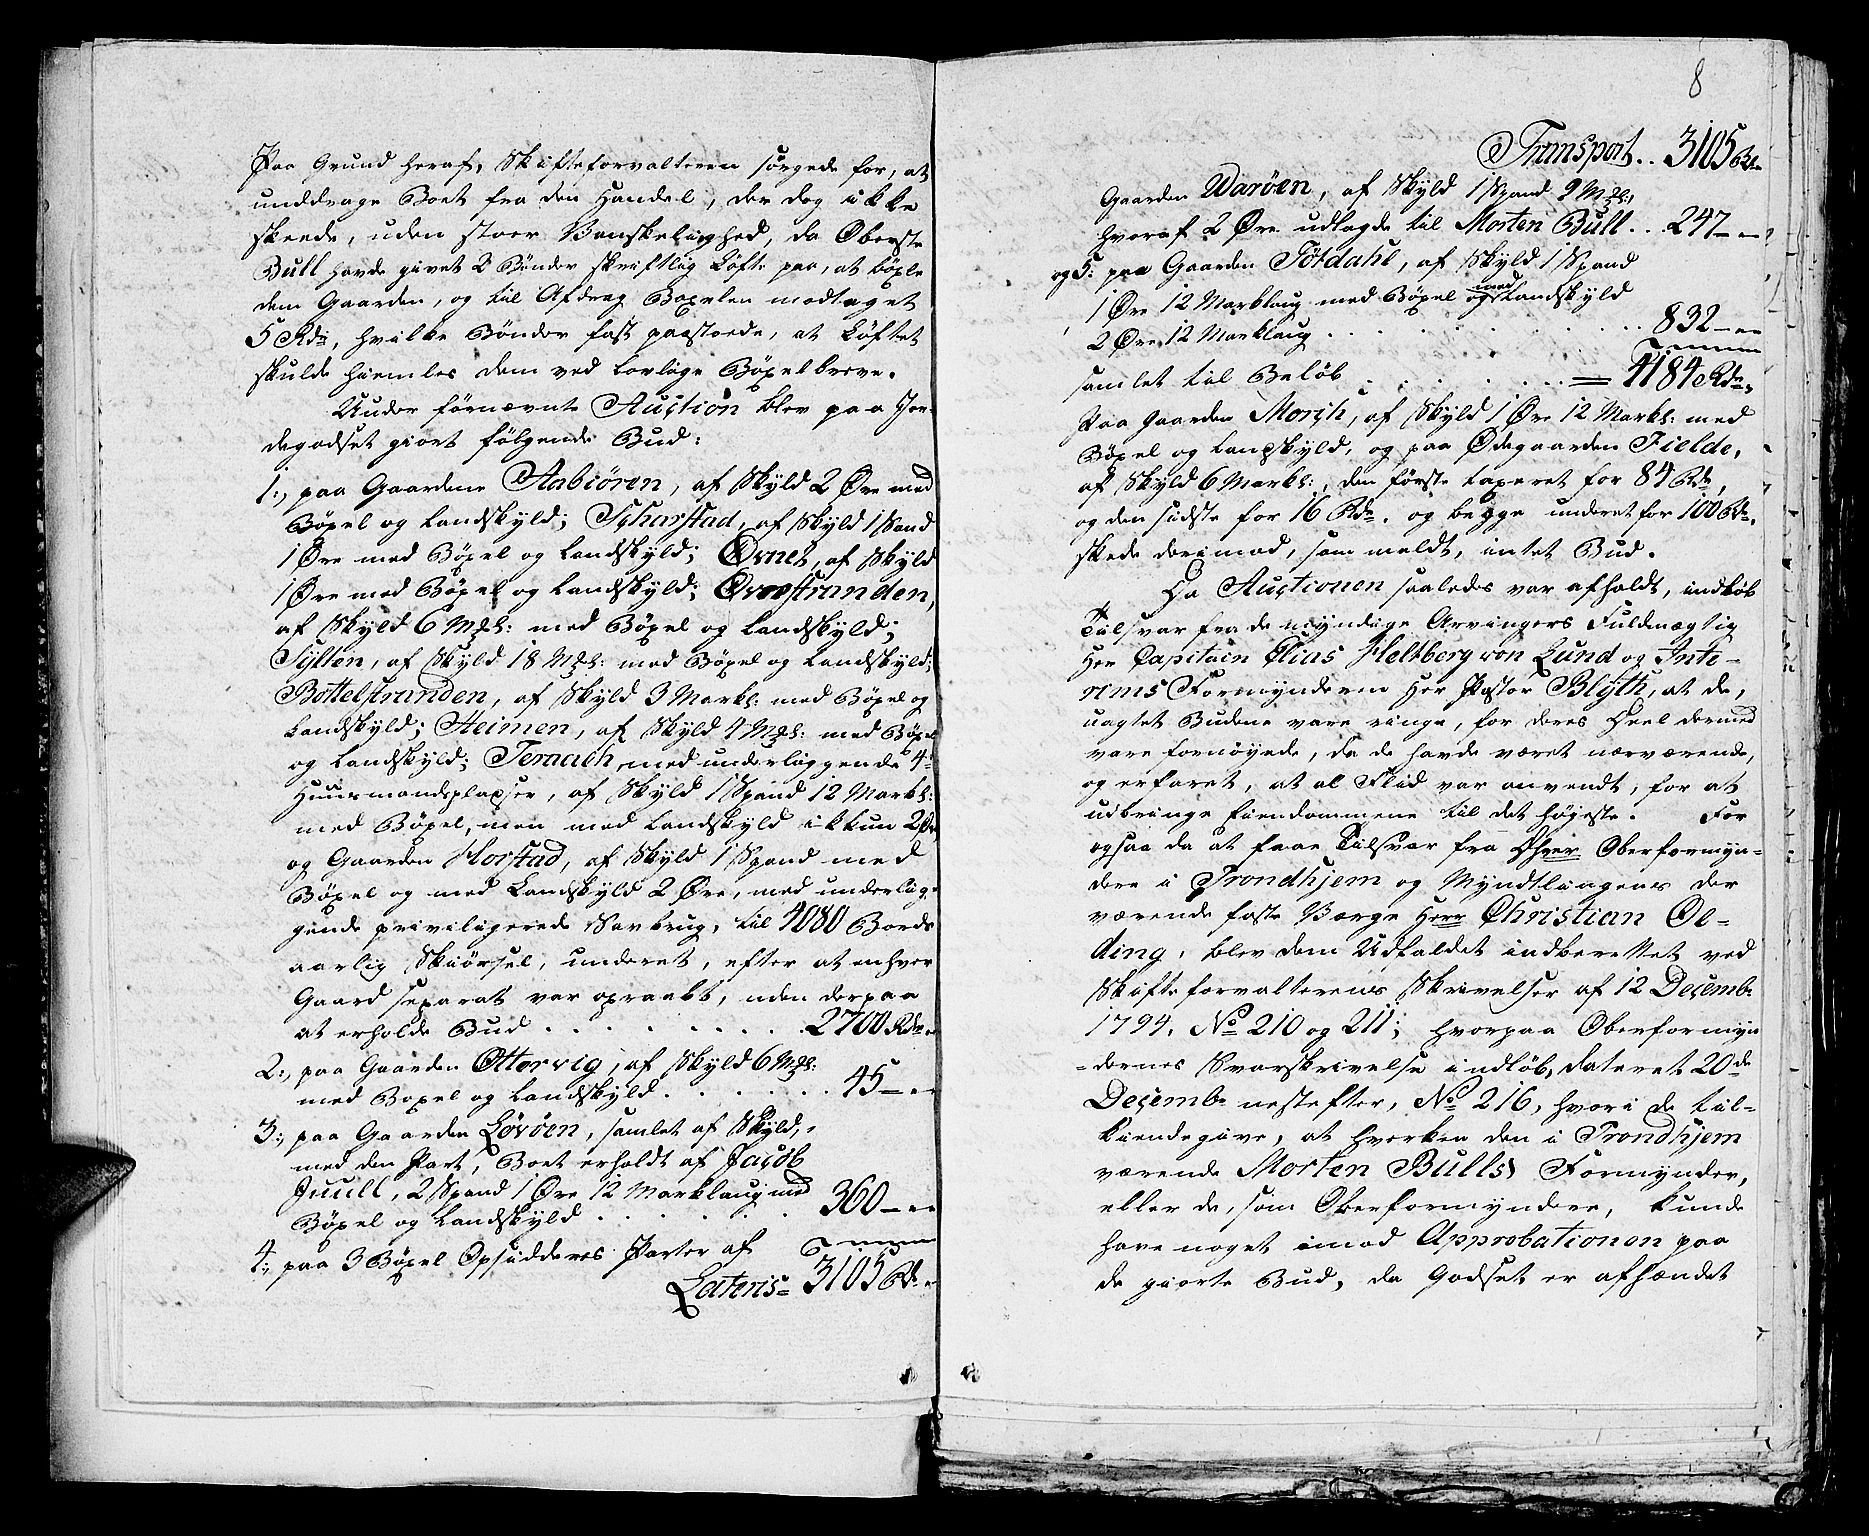 Paa Grund heraf, Skifteforvalteren sørgede for, at
unddrage Boet fra den Handel, der dog ikke
skeede, uden stoer Vanskelighed, da Oberste
Bull havde givet 2 Bønder skriftlig Løfte paa, at bøxle
dem Gaarden, og til Afdrag Boxelen modtaget
5 Rdr, hvilke Bønder fast paastoede, at Løftet
skulde hiemles dem ved lovlige Bøxelbreve.
Under førnævnte Auction blev paa Jor-
degodset giort følgende Bud:
1:, paa Gaardene Aabiören, af Skyld 2 Øre med
Bøxel og Landskyld; Scharstad, af Skyld 1 Spand
1 Øre med Bøxel og Landskyld; Ørnet, af Skyld
1 Øre med Bøxel og Landskyld; Ørnestranden,
af Skyld 6 Mrkl: med Bøxel og Landskyld;
Sylten, af Skyld 18 Mrkl: med Bøxel og Landskyld;
Bottelstranden, af Skyld 3 Markl: med Bøxel og
Landskyld; Heimen, af Skyld 4 Mrkl: med Bøxel
og Landskyld; Teraach med underliggende 4
Huusmandspladser, af Skyld 1 Spand 12 Markl:
med Bøxel, men med Landskyld ikkun 2 Øre
og Gaarden Horstad, af Skyld 1 Spand med
Bøxel og med Landskyld 2 Øre, med underlig-
gende priviligerede Savbrug, til 4080 Bords
aarlig Skiørsel, underet, efter at enhver
Gaard separat var opraabt, uden derpaa
at erholde Bud . . . . . . . . . 2700 Rdr
2:, paa Gaarden Ottervig, af Skyld 6 Mrkl:
med Boxel og Landskyld . . . . . . 45 — „
3:, paa Gaarden Løvöen, samlet af Skyld,
med den Part, Boet erholdt af Jacob
Juull, 2 Spand 1 Øre 12 Marklaug med
Bøxel og Landskyld . . . . . . 360 — „
4:, paa 3 Bøxel Opsidderes Parter af
Lateris = 3105 Rdr
8
Transport .. 3105 Rdr
Gaarden Warøen, af Skyld 1 Spand 9 Mrkl:
hvoraf 2 Øre udlagde til Morten Bull . . . 247 — „
og 5: paa Gaarden Tötdahl, af Skyld 1 Spand
1 Øre 12 Marklaug med Bøxel og med Landskyld
2 Øre 12 Marklaug . . . . . . . . 832 — „
samlet til Beløb . . . . . . = 4184 Rdr,
Paa Gaarden Morch, af Skyld 1 Øre 12 Markl: med
Bøxel og Landskyld, og paa Ødegaarden Fielde,
af Skyld 6 Markl:, den første taxeret for 84 Rdr,
og den sidste for 16 Rdr. og begge underet for 100 Rdr.
skede derimod, som meldt, intet Bud.
Da Auctionen saaledes var afholdt, indløb
Tilsvar fra de myndige Arvingers Fuldmægtig
Her Capitain Elias Heltberg von Lund og Inte-
rims Formynderen Her Pastor Blyth, at de,
uagtet Budene vare ringe, for deres Deel dermed
vare fornøyede, da de havde været nærværende,
og erfaret, at al Flid var anvendt, for at
udbringe Eiendommene til det høyeste. For
ogsaa da at faae Tilsvar fra Dhrer Oberformyn-
dere i Trondhjem og Myndtlingens der
værende faste Værge Herr Christian Oe-
ding, blev dem Udfaldet indberettet ved
Skifteforvalterens Skrivelser af 12 Decemb.
1794, No 210 og 211; hvorpaa Oberformyn
-dernes Svarskrivelse indløb, dateret 20de
Decemb. nestefter, No 216, hvori de til-
kiendegive, at hverken den i Trondhjem
værende Morten Bulls Formynder,
eller de, som Oberformyndere, kunde
have noget imod Approbationen paa
de giorte Bud, da Godset er afhændet